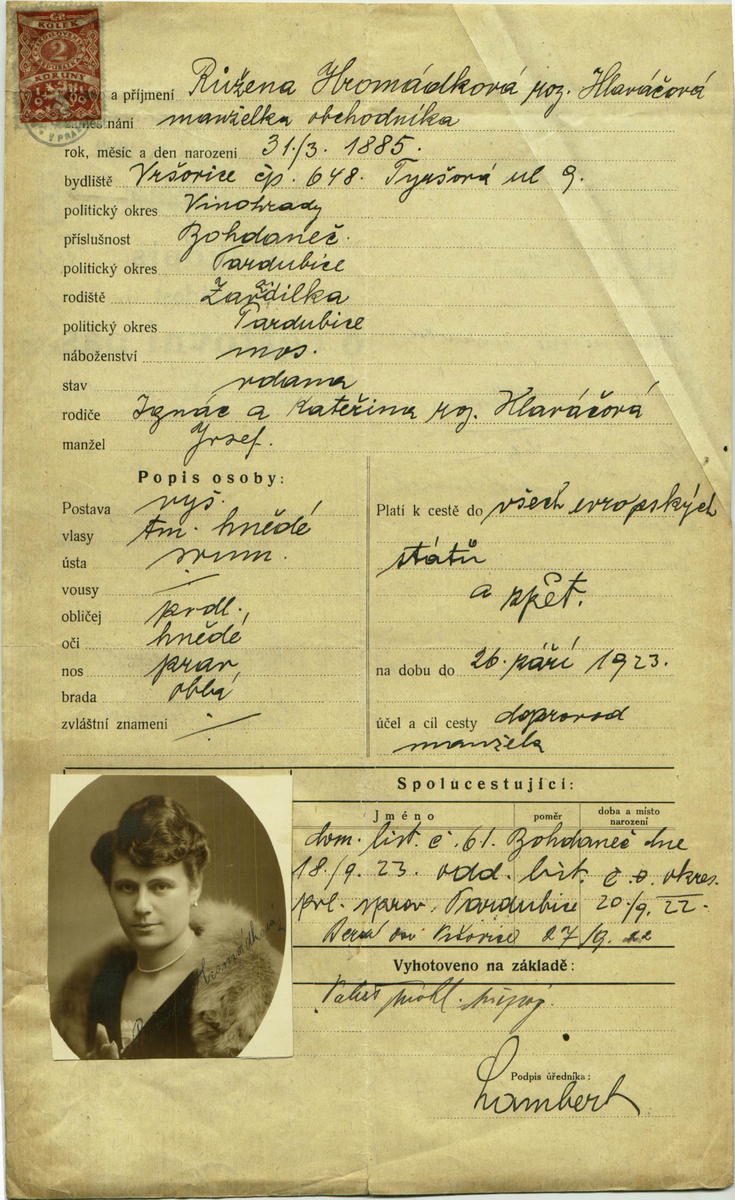 KOLEK
2
KORUNY
a příjmení Růžena Hromádková roz. Hlaváčová
manželka obchodníka
rok, měsíc a den narození 31./3. 1885.
bydliště Vršovice čp. 648. Tyršová ul 9.
politický okres Vinohrady
příslušnost Bohdaneč.
politický okres Pardubice
rodiště
politický okres Pardubice
náboženství
stav vdana
rodiče Ignác a Kateřina roz. Hlaváčová
manžel Josef.
Popis osoby:
Postava vyš.
vlasy tm. hnědé
ústa
vousy /
obličej podl.
oči hnědé
nos prav
brada oblá
zvláštní znamení ./.
Platí k cestě do všech evropských
států
a zpět.
na dobu do 26. září 1923.
účel a cíl cesty doprovod
manžela
Spolucestující:
Jméno poměr doba a místo narození
dom. list. č. 61. Bohdaneč dne
18./9. 23. odd. list. č. o. okres.
pol. sprav. Pardubice 20./9. 22.
Vršovice 27/9. 22
Vyhotoveno na základě:
Podpis úředníka:
Lambert
Hromádková